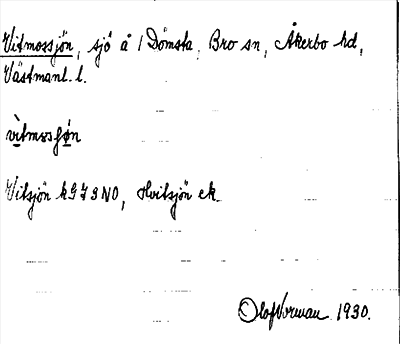 Vitmossjön, sjö å 1 Dömsta, Bro sn, Åkerbo hd,
Västmanl. l.
vìtmosʃǿn
Vitsjön kG73NO, Hvitsjön ek.
Olof Vorman 1930.